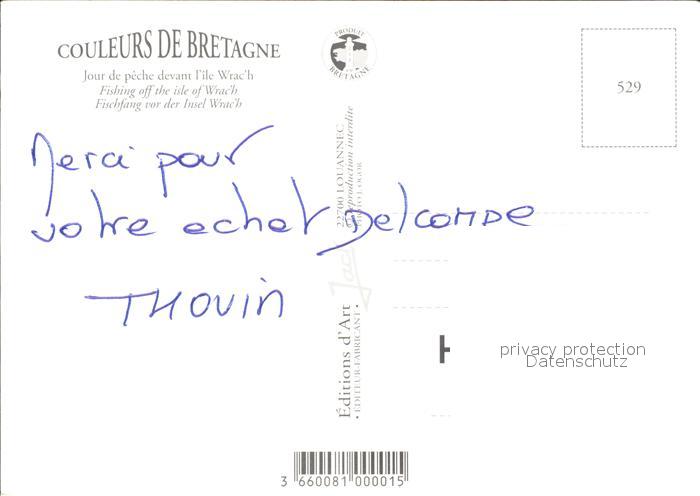 COULEURS DE BRETAGNE
Jour de pêche devant l'île Wrac'h
Fishing off the isle of Wrac'h
Fischfang vor der Insel Wrac'h
PRODUIT EN BRETAGNE
529
Merci pour
votre achat Delcampe
THOUIN
Éditions d'Art
• ÉDITEUR-FABRICANT •
22700 LOUANNEC
Reproduction interdite
H
privacy protection
Datenschutz
3 660081 000015